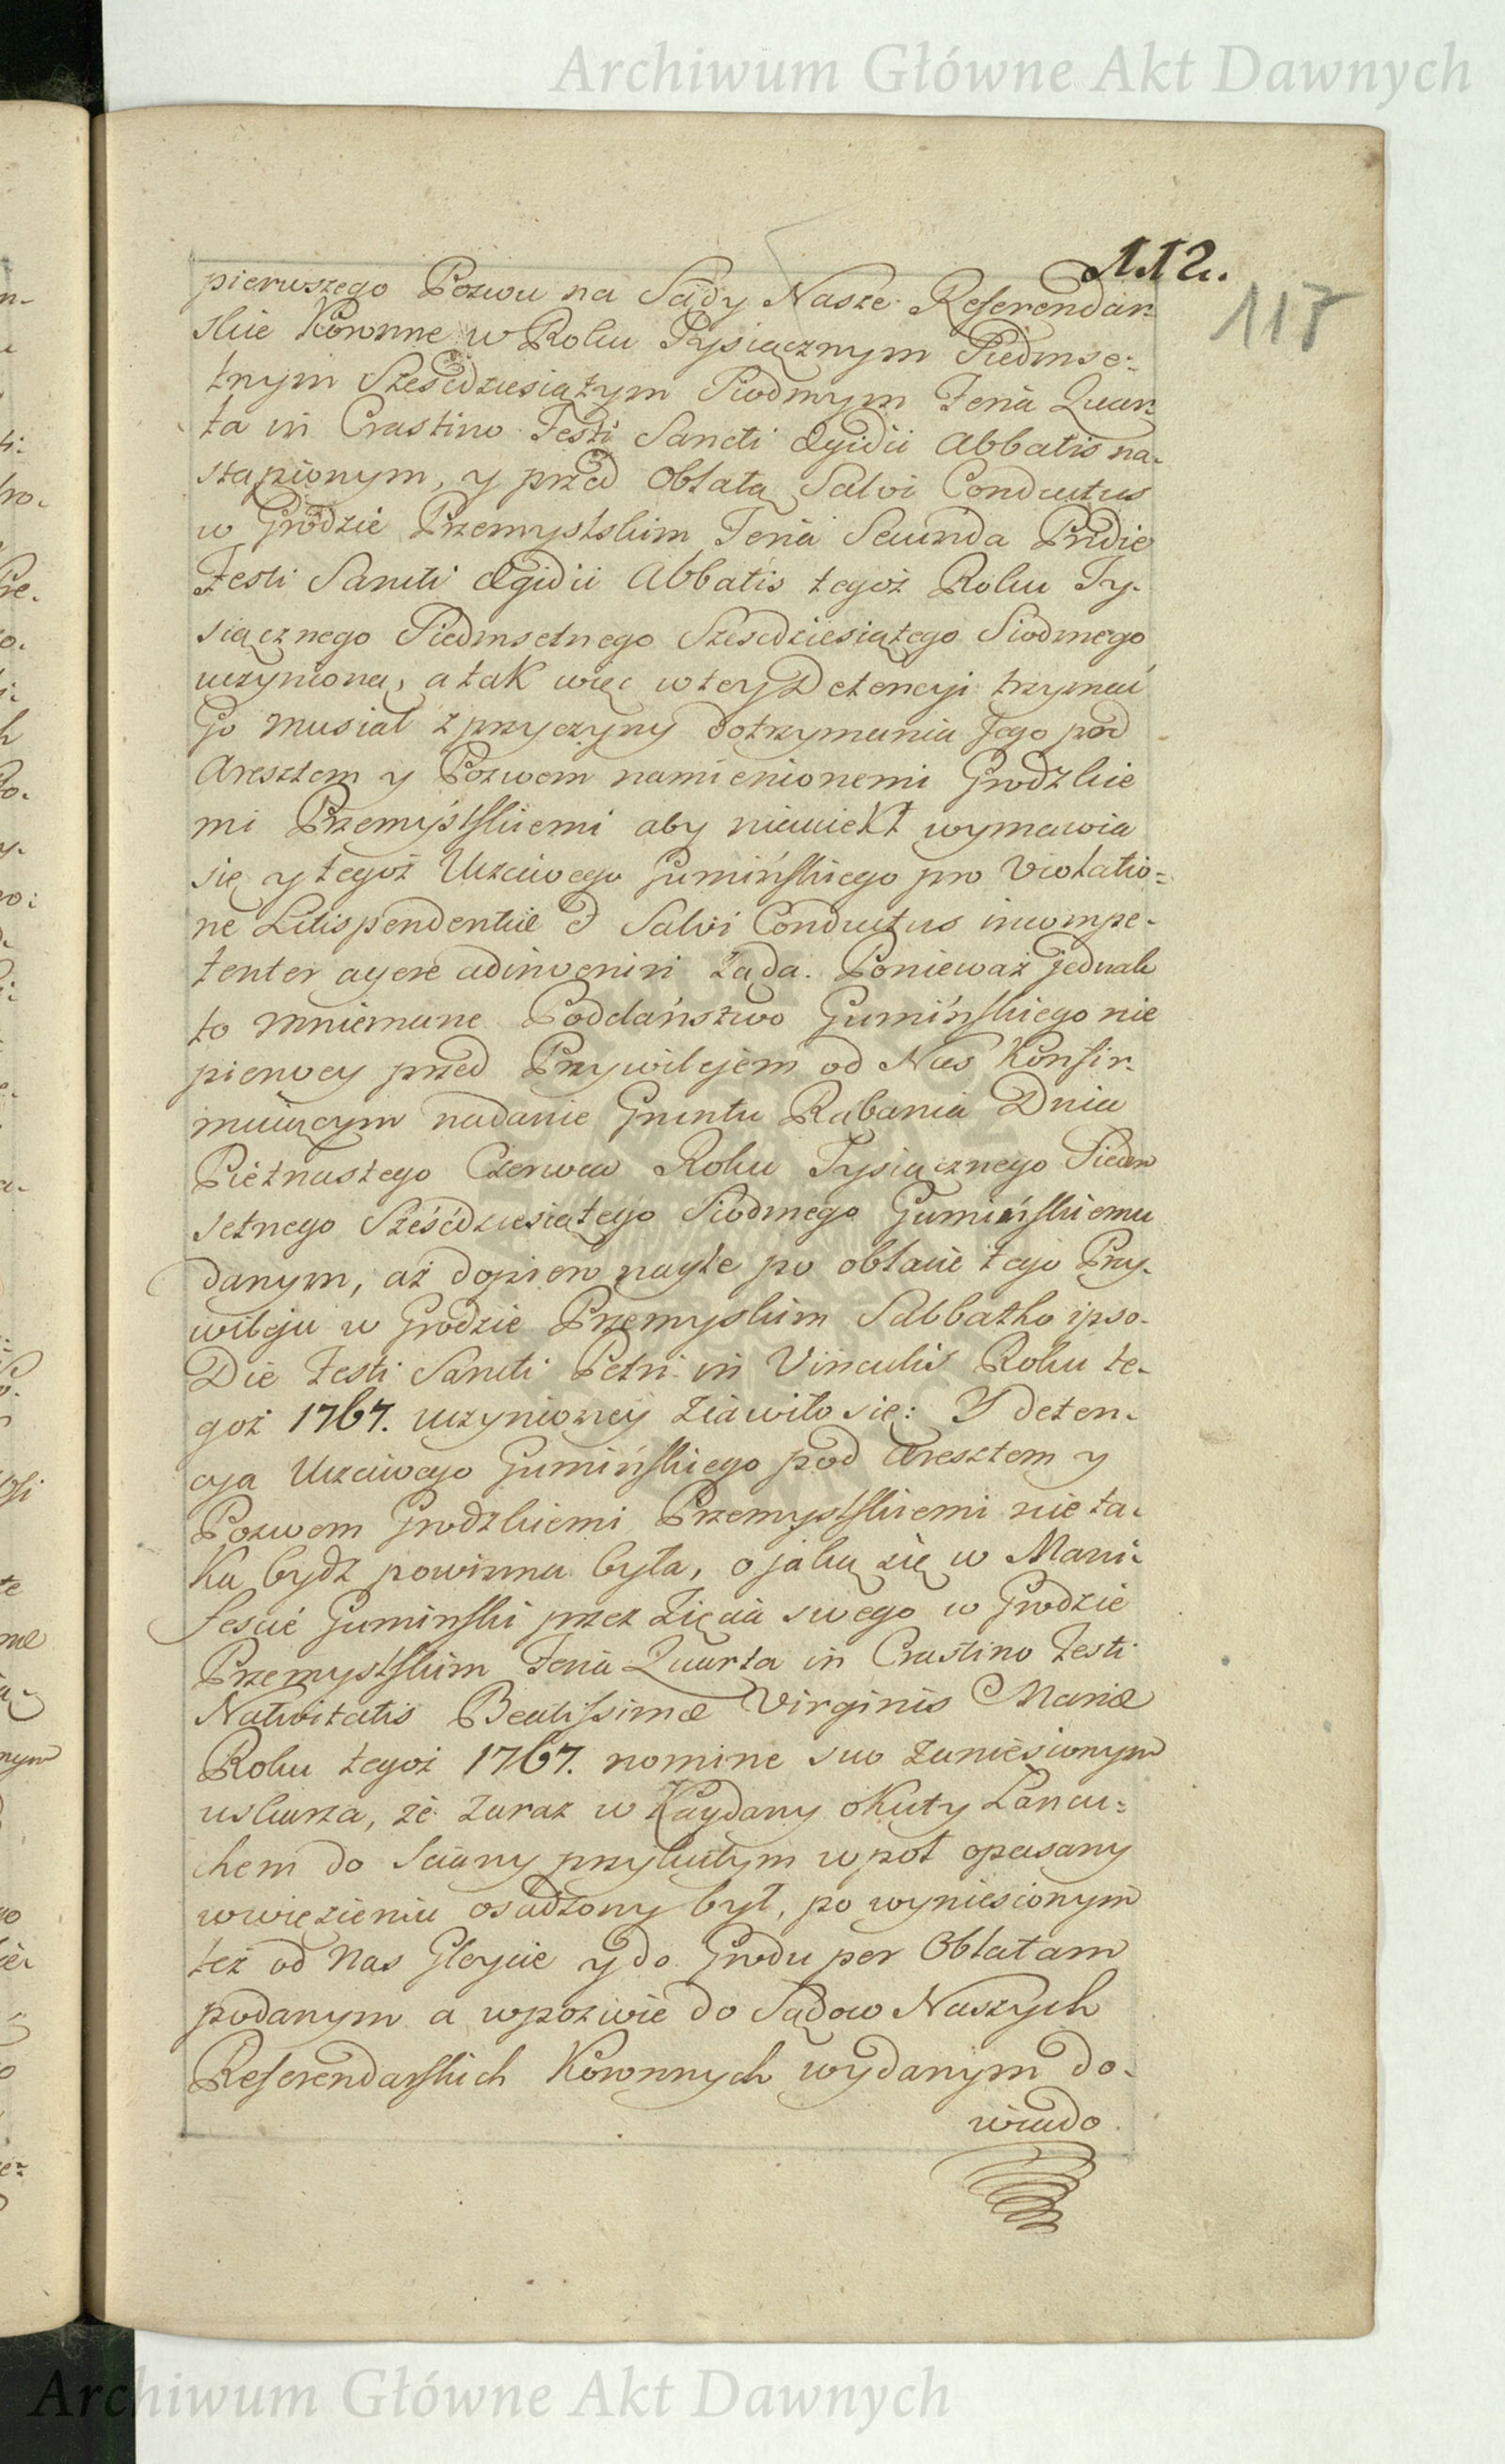 Archiwum Główne Akt Dawnych
112.
117
pierwszego Pozwu na Sądy Nasze Referendar=
skie Koronne w Roku Tysiącznym Siedmse=
tnym Sześćdziesiątym Siodmym Feria Quar=
ta in Crastino Festi Sancti Ægidii Abbatis na-
stąpionym, y przed Oblatą Salvi Conductus
w Grodzie Przemyslskim Feria Secunda Pridie
Festi Sancti Ægidii Abbatis tegoż Roku Ty-
siącznego Siedmsetnego Sześćdziesiątego Siodmego
uczynioną, a tak więc w tey Detencyi trzymać
Go musiał z przyczyny dotrzymania Jego pod
Aresztem y Pozwem namienionemi Grodzkie
mi Przemyślskiemi aby nieuciekł wymawia
się y tegoż Uczciwego Gumińskiego pro Violatio=
ne Litispendentiæ & Salvi Conductus incompe-
tenter agere adinveniri żąda. Ponieważ jednak
to mniemane Poddaństwo Gumińskiego nie
pierwey przed Przywilejem od Nas Konfir-
muiącym nadanie Gruntu Rabania Dnia
Piętnastego Czerwca Roku Tysiącznego Siedm
setnego Sześćdziesiątego Siodmego Gumińskiemu
danym, aż dopiero nagle po oblacie tego Przy-
wileju w Grodzie Przemyskim Sabbatho ipso-
Die Festi Sancti Petri in Vinculis Roku te-
goż 1767. uczynioney ziawiło się: Y deten-
cya Uczciwego Gumińskiego pod Aresztem y
Pozwem Grodzkiemi Przemyslskiemi nie ta-
ka bydź powinna była, o jaką się w Mani-
fescie Guminski przez Zięcia swego w Grodzie
Przemyslskim Feria Quarta in Crastino Festi
Nativitatis Beatissimæ Virginis Mariæ
Roku tegoż 1767. nomine suo zaniesionym
uskarża, że zaraz w Kaydany okuty Łancu=
chem do Sciany przykutym wpoł opasany
w więzieniu osadzony był, po wyniesionym
też od Nas Gleycie y do Grodu per Oblatam
podanym a w pozwie do Sądow Naszych
Referendarskich Koronnych wydanym do-
wiado
Archiwum Główne Akt Dawnych